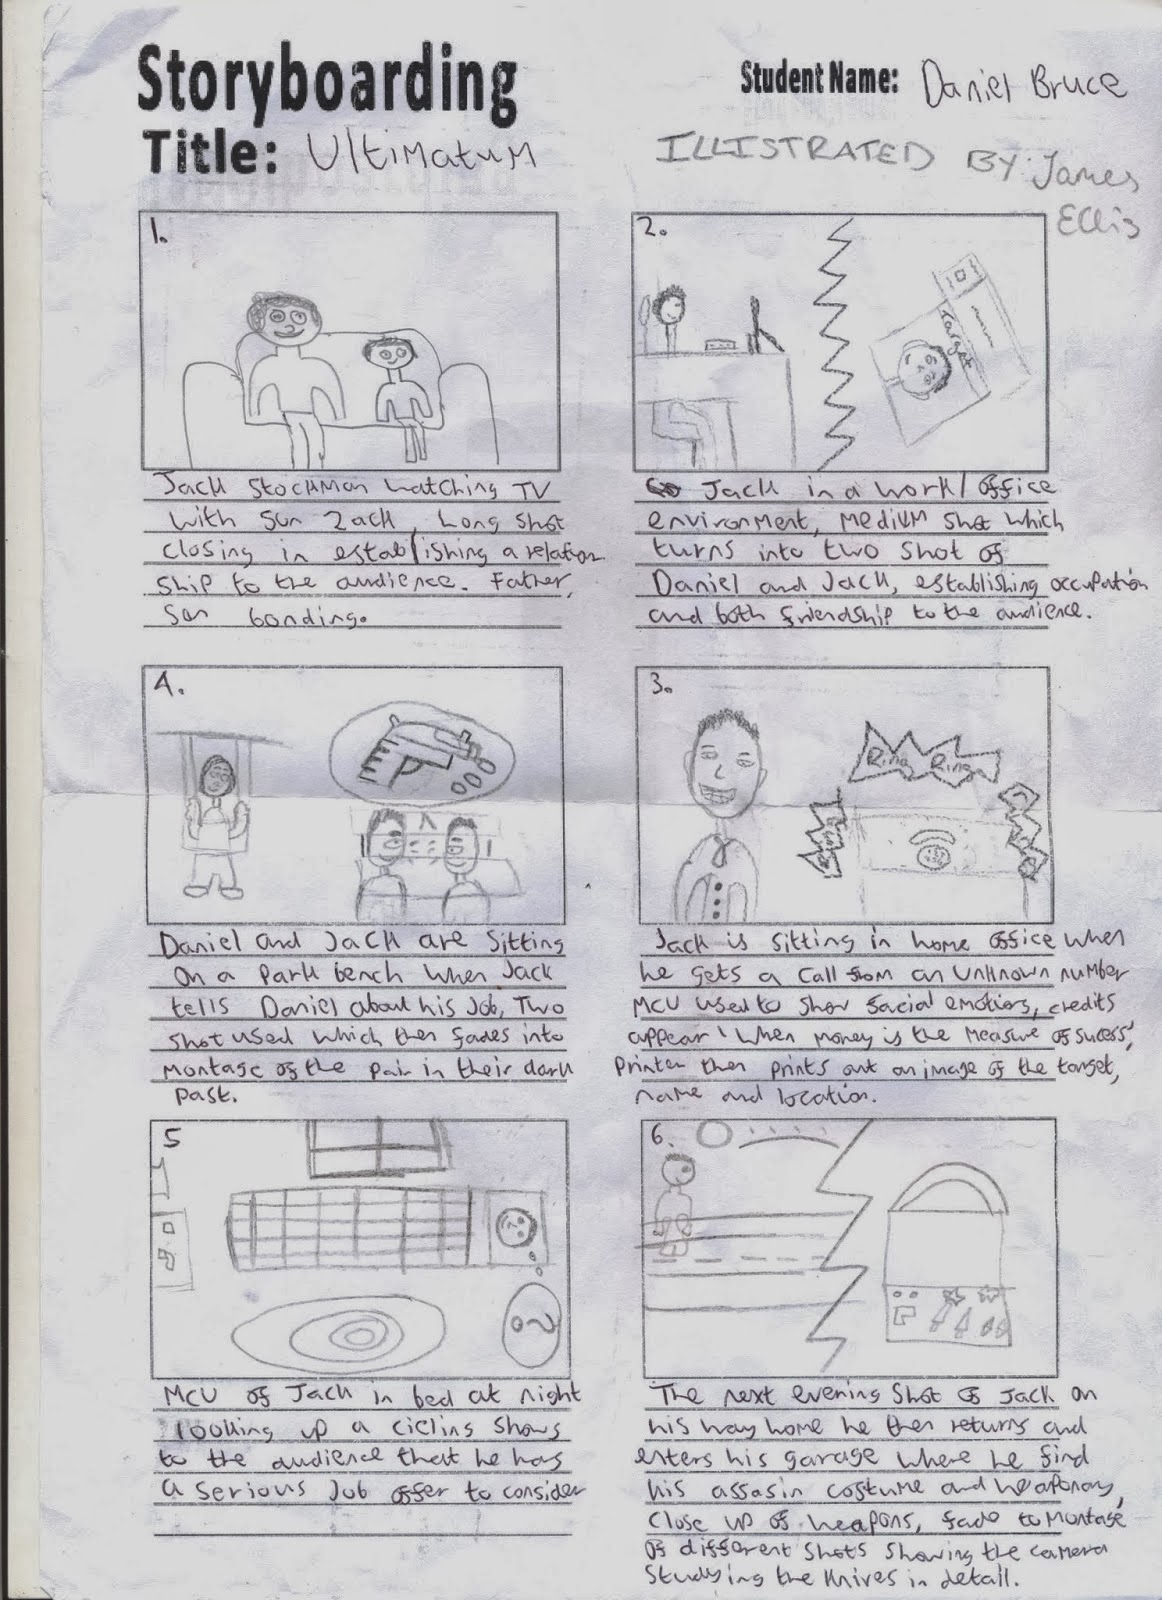 Storyboarding
Student Name: Daniel Bruce
Title: Ultimatum
ILLISTRATED BY: James
Ellis
1.
Jack Stockman watching TV
with son Zack, Long shot
closing in establishing a relation
ship to the audience. Father,
Son bonding.
2.
Target
Jack in a work/office
environment, medium shot which
turns into two shot of
Daniel and Jack, establishing occupation
and both friendship to the audience.
4.
Daniel and Jack are sitting
on a park bench when Jack
tells Daniel about his Job, Two
shot used which then fades into
montage of the pair in their dark
past.
3.
Ring Ring
Jack is sitting in home office when
he gets a call from an unknown number
MCU used to show facial emotions, credits
appear 'When money is the measure of sucess',
Printer then prints out an image of the target,
name and location.
5
MCU of Jack in bed at night
looking up a cicling shows
to the audience that he has
a serious Job offer to consider
6.
The next evening shot of Jack on
his way home he then returns and
enters his garage where he find
his assasin costume and weaponary,
close up of weapons, fade to montage
of different shots showing the camera
studying the knives in detail.